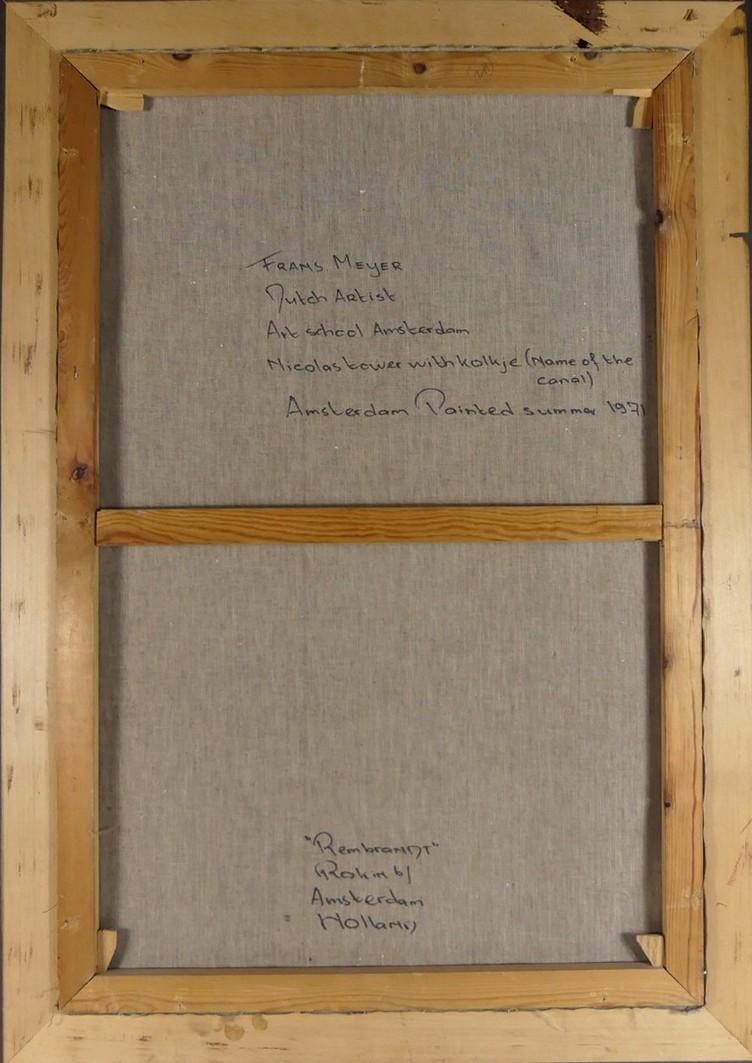 FRANS. MEYER
Dutch Artist
Art school Amsterdam
Nicolastower with kolkje (Name of the
canal)
Amsterdam Painted summer 1971
"Rembrandt"
Rokin
Amsterdam
Holland